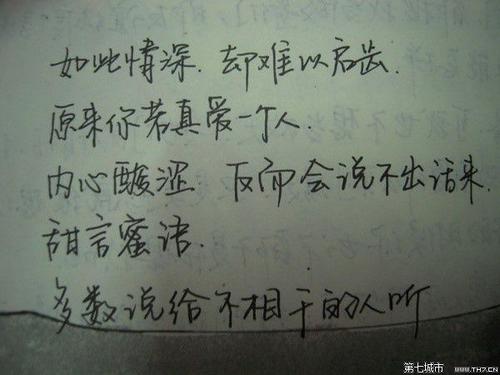 如此情深.却难以启齿.
原来你若真爱一个人.
内心酸涩 反而会说不出话来.
甜言蜜语.
多数说给不相干的人听
第七城市 WWW.TH7.CN